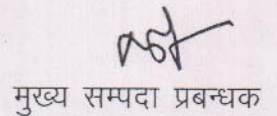 मुख्य सम्पदा प्रबन्धक